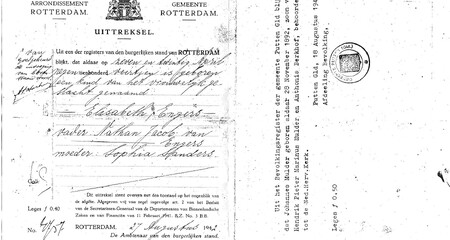 ARRONDISSEMENT
ROTTERDAM.
GEMEENTE
ROTTERDAM.
UITTREKSEL.
Uit een der registers van den burgerlijken stand van ROTTERDAM
blijkt, dat aldaar op zeven en twintig April
negen honderd veertien is geboren
een kind van het vrouwelijk ge-
slacht genaamd
Elisabeth Engers
vader Nathan Jacob van
Engers
moeder Sophia Sanders.
Dit uittreksel stemt overeen met den toestand op het oogenblik van
de afgifte. Afgegeven vrij van zegel ingevolge art. 3 van het Besluit
van de Secretarissen-Generaal van de Departementen van Binnenlandsche
Zaken en van Financiën van 11 Februari 1941. B.Z. No. 3 B.B.
Leges f 0.40
No.
ROTTERDAM, 27 Augustus 1942
De Ambtenaar van den burgerlijken stand,
Uit het Bevolkingsregister der gemeente Putten Gld blij
dat Johannes Mulder geboren aldaar 28 November 1892, zoon v
Hendrik Pieter Marinus Mulder en Anthonia Berkhof, behoorde
tot de Ned.Herv.Kerk.
Putten Gld, 18 Augustus 194
Afdeeling Bevolking,
Leges f 0.50